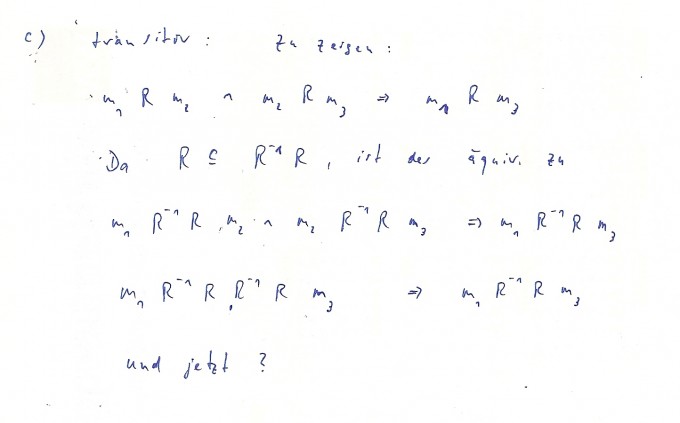 c) transitiv : zu zeigen :
m₁ R m₂ ∧ m₂ R m₃ ⇒ m₁ R m₃
Da R ⊆ R⁻¹ R , ist der äquiv. zu
m₁ R⁻¹ R m₂ ∧ m₂ R⁻¹ R m₃ ⇒ m₁ R⁻¹ R m₃
m₁ R⁻¹ R R⁻¹ R m₃ ⇒ m₁ R⁻¹ R m₃
und jetzt ?